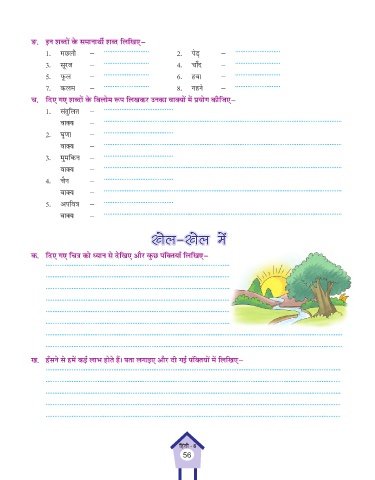 ङ. इन शब्दों के समानार्थी शब्द लिखिए–
1. मछली – 2. पेड़ –
3. सूरज – 4. चाँद –
5. फूल – 6. हवा –
7. कलम – 8. गहने –
च. दिए गए शब्दों के विलोम रूप लिखकर उनका वाक्यों में प्रयोग कीजिए–
1. संतुलित –
वाक्य –
2. घृणा –
वाक्य –
3. मुमकिन –
वाक्य –
4. चैन –
वाक्य –
5. अपवित्र –
वाक्य –
खेल-खेल में
क. दिए गए चित्र को ध्यान से देखिए और कुछ पंक्तियाँ लिखिए–
ख. हँसने से हमें कई लाभ होते हैं। पता लगाइए और दी गई पंक्तियों में लिखिए–
56